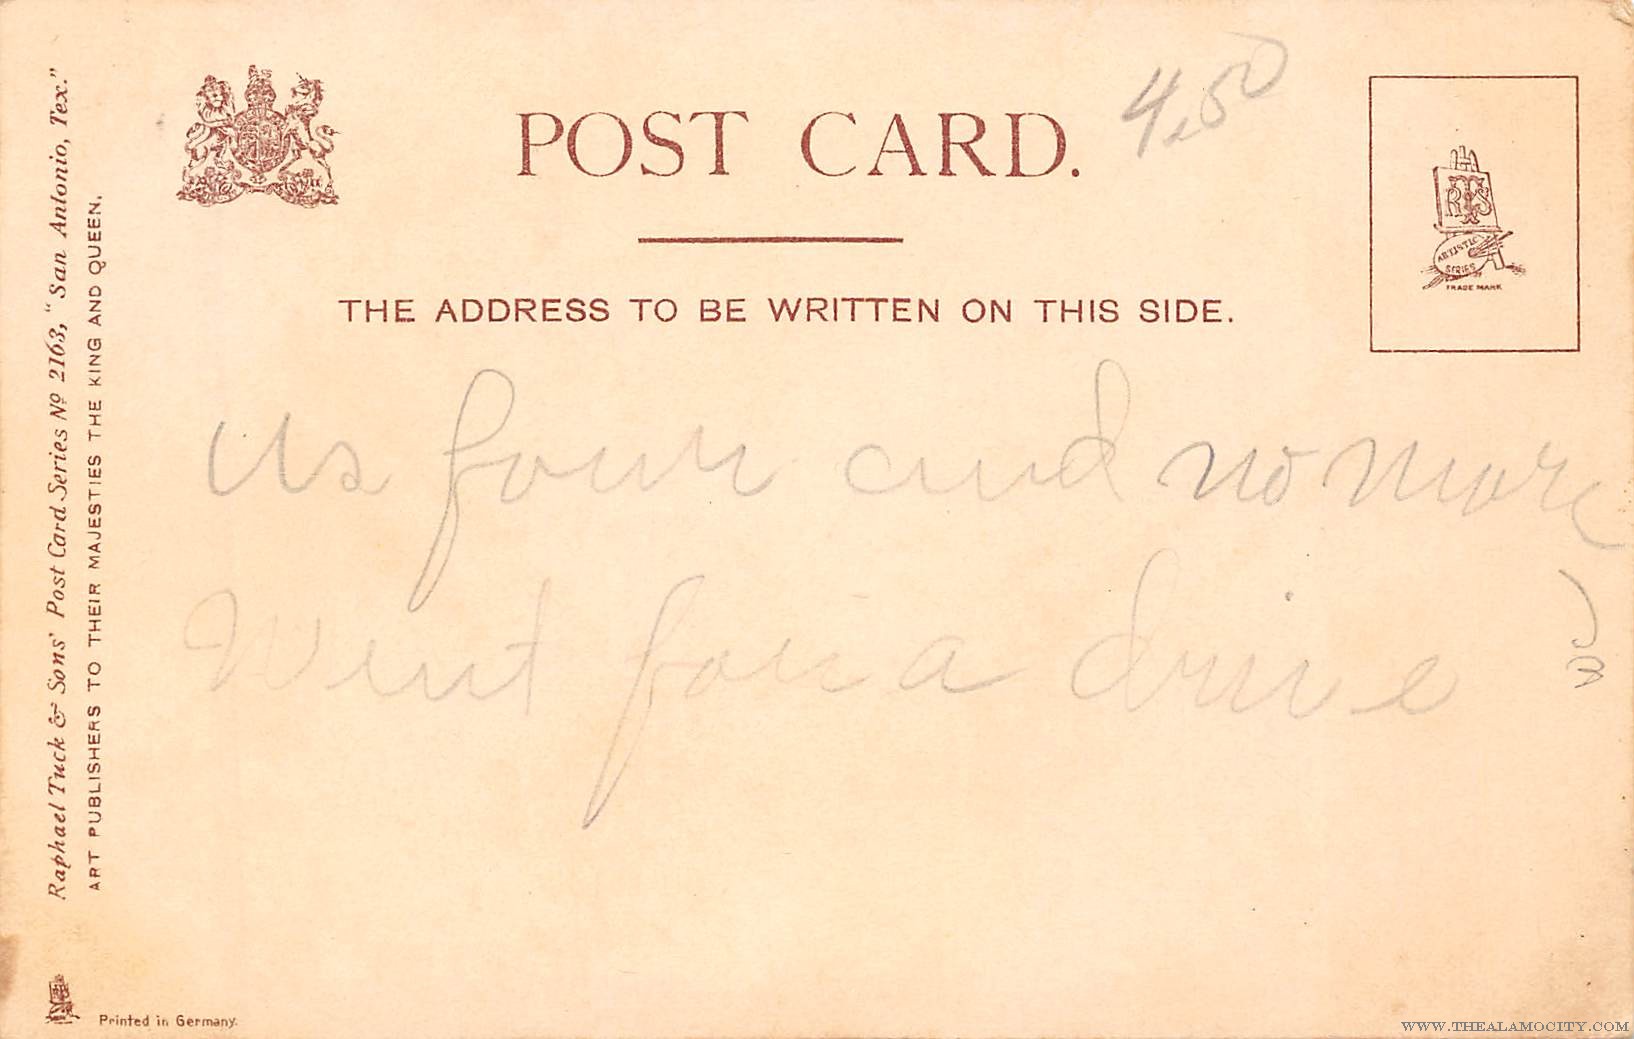 POST CARD.
4.50
THE ADDRESS TO BE WRITTEN ON THIS SIDE.
RTS
ARTISTIC
SERIES
TRADE MARK
us four and no more
Went for a drive
Raphael Tuck & Sons' Post Card Series No 2163, "San Antonio, Tex."
ART PUBLISHERS TO THEIR MAJESTIES THE KING AND QUEEN.
Printed in Germany.
WWW.THEALAMOCITY.COM